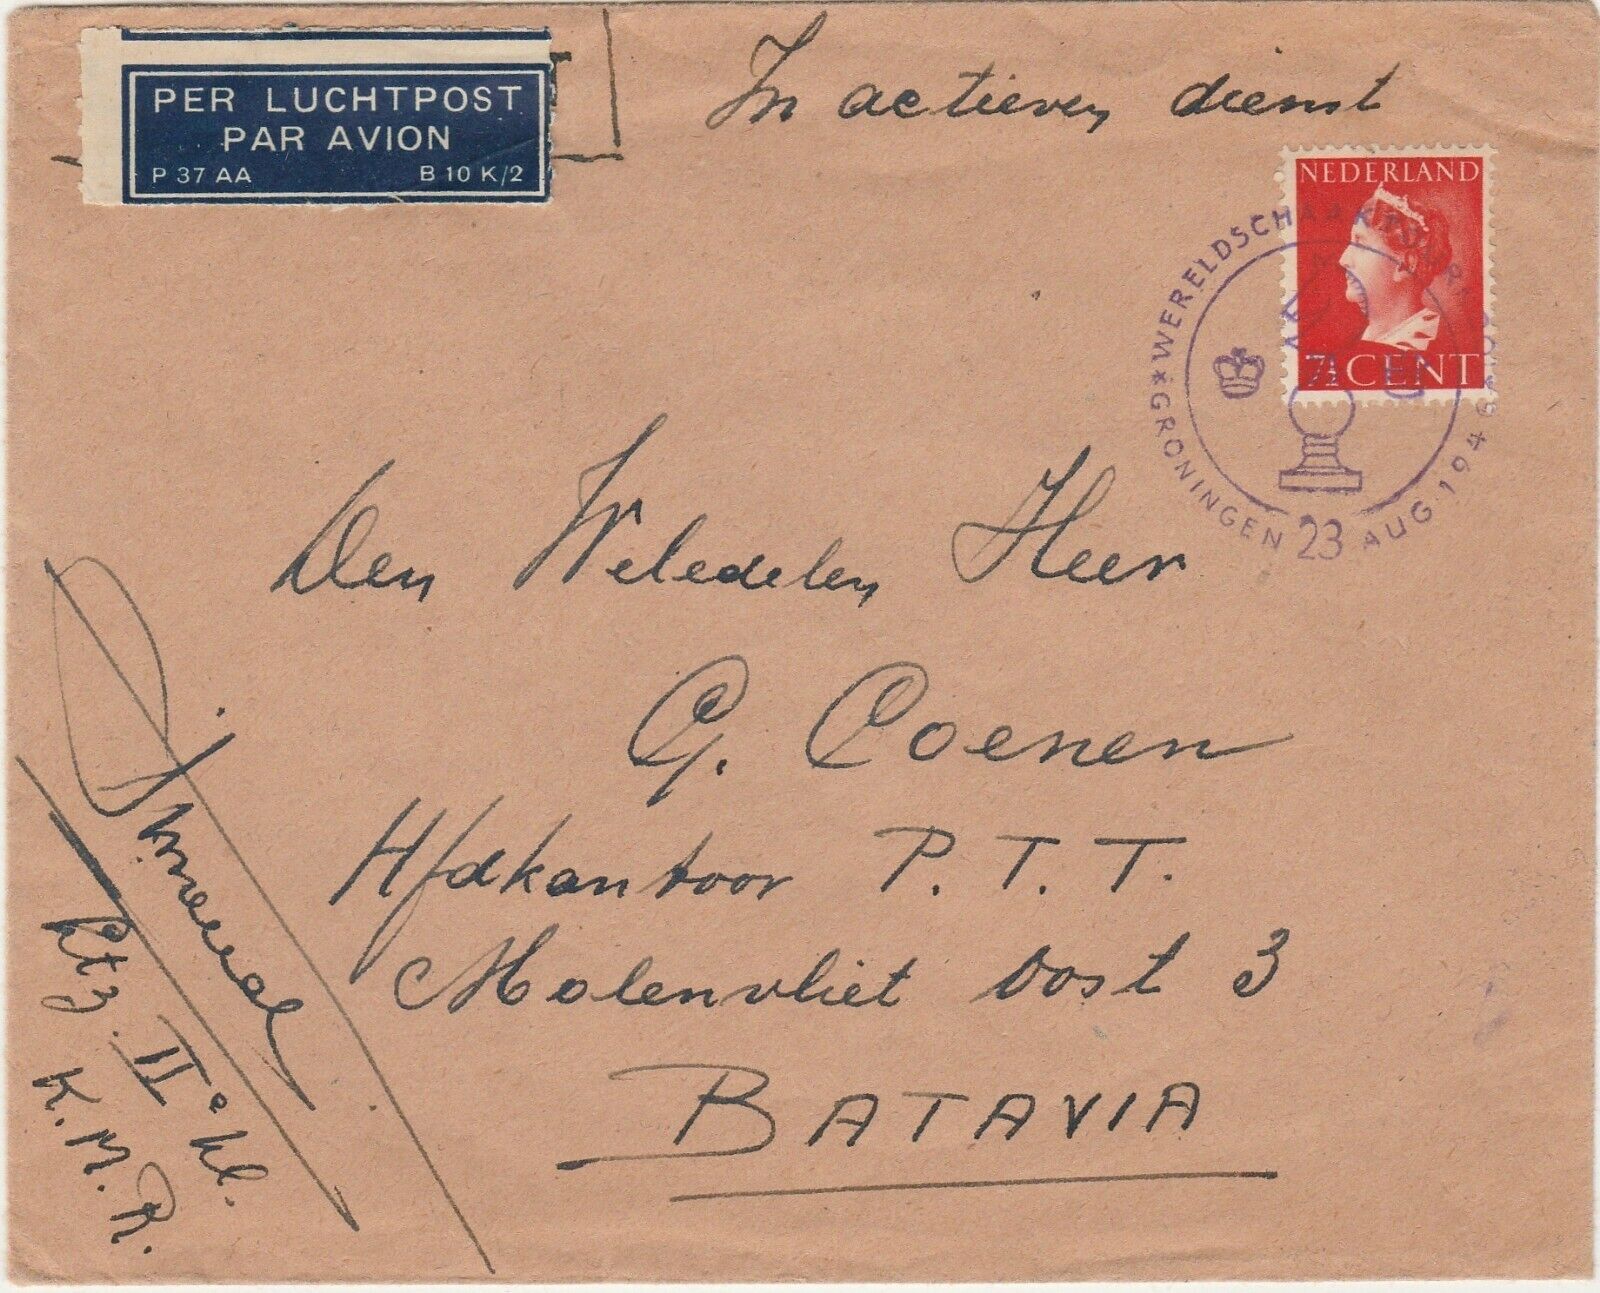 PER LUCHTPOST
PAR AVION
P 37 AA B 10 K/2
In actieven dienst
NEDERLAND
7½ CENT
* WERELDSCHAAKTOURNOOI
* GRONINGEN 23 AUG. 1946
Den Weledelen Heer
G. Coenen
Hfdkantoor P.T.T.
Molenvliet Oost 3
BATAVIA
Ltz. IIe kl.
K.M.R.